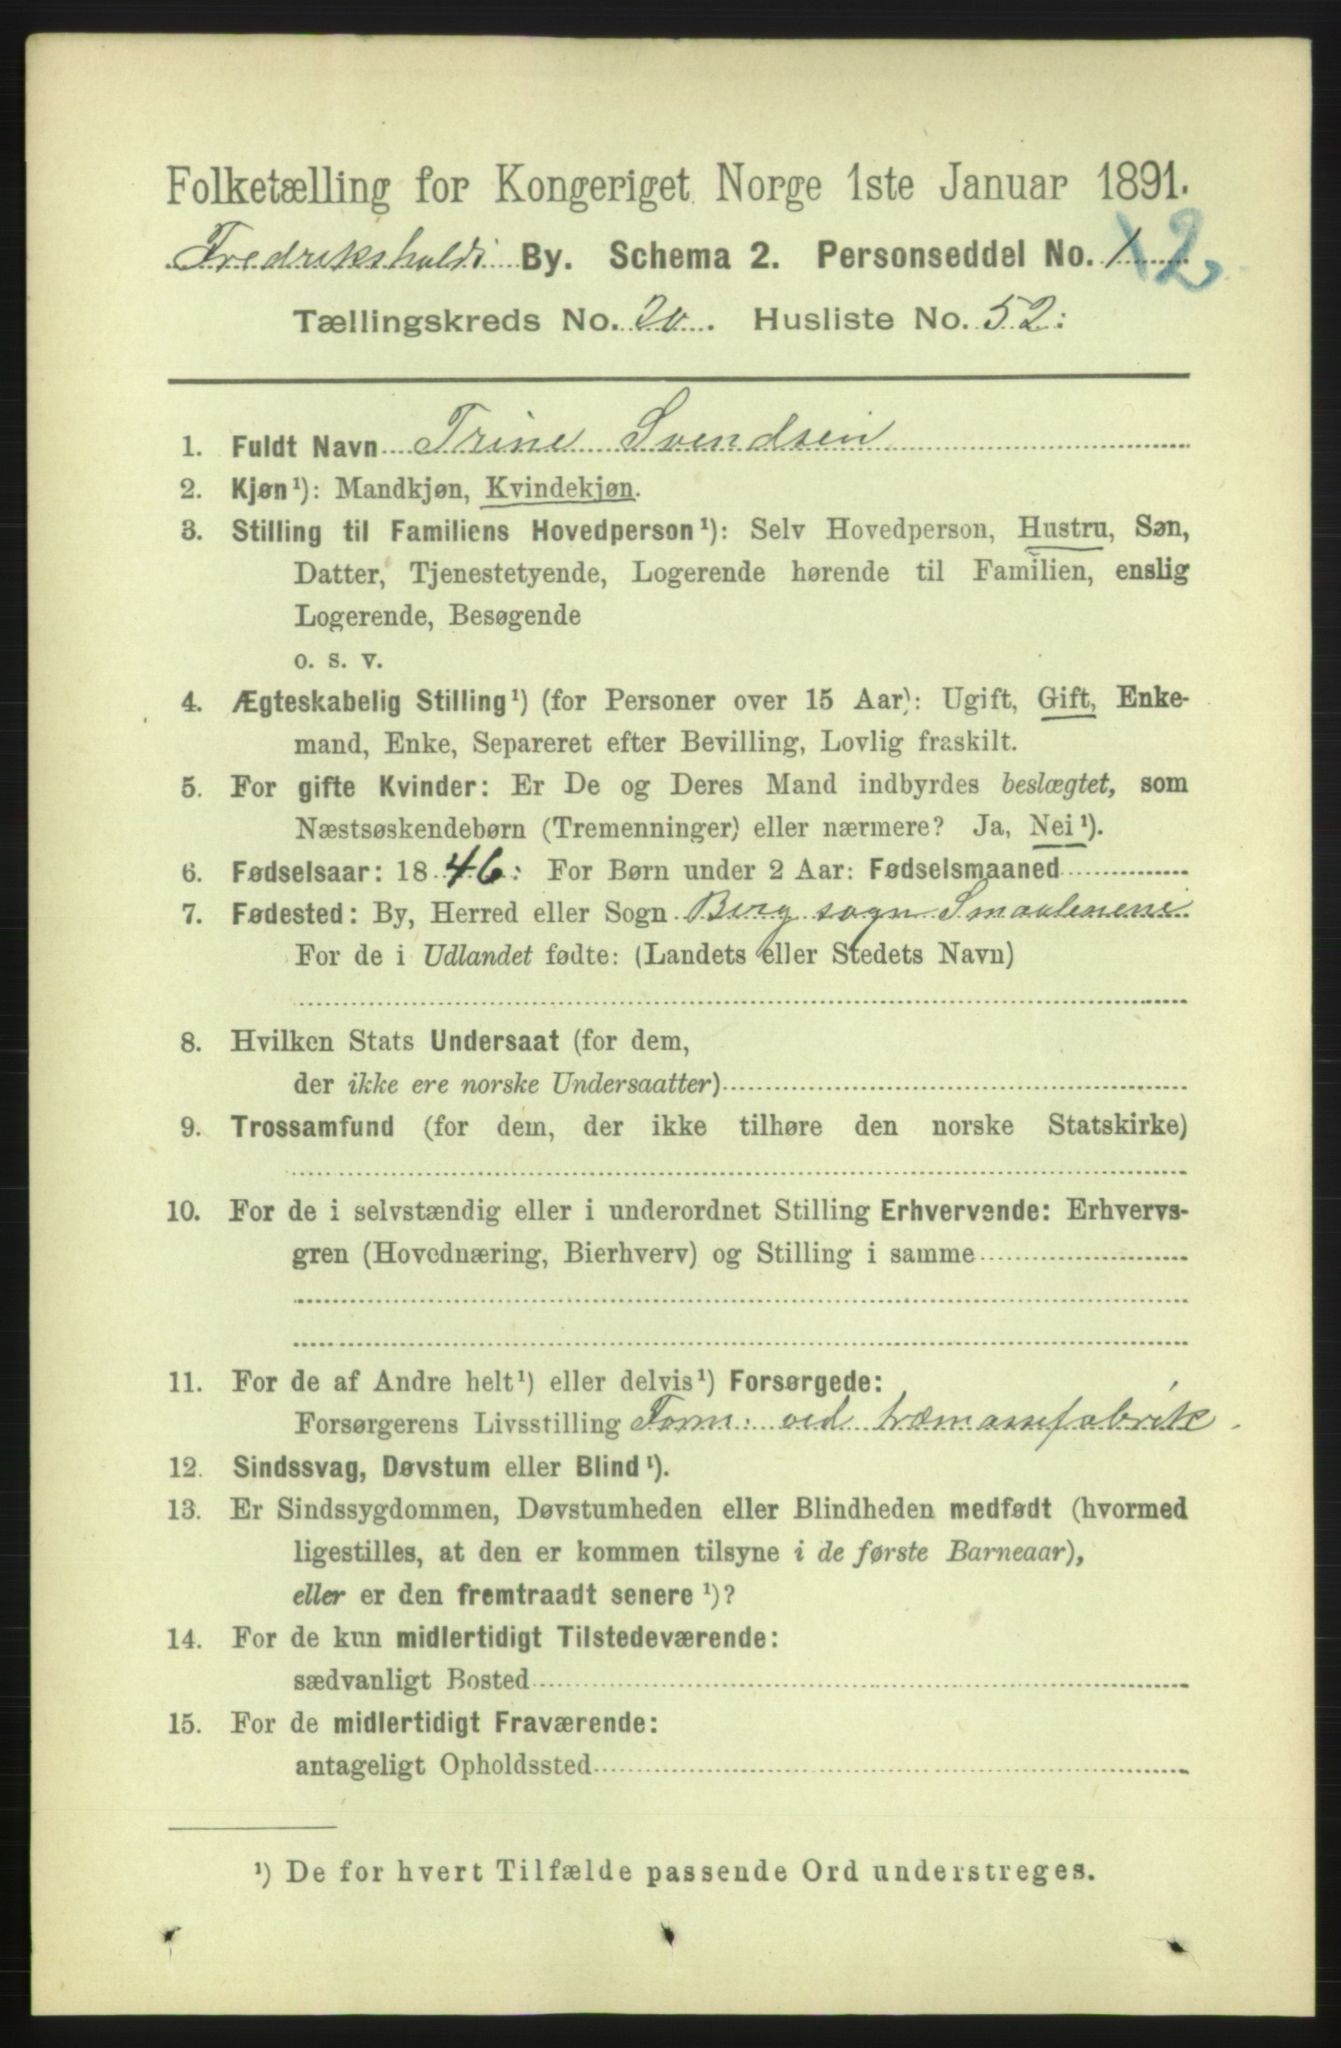 Folketælling for Kongeriget Norge 1ste Januar 1891.
Fredrikshalds By. Schema 2. Personseddel No. 1 2
Tællingskreds No. 20. Husliste No. 52:
1. Fuldt Navn Trine Svendsen
2. Kjøn¹): Mandkjøn, Kvindekjøn.
3. Stilling til Familiens Hovedperson¹): Selv Hovedperson, Hustru, Søn,
Datter, Tjenestetyende, Logerende hørende til Familien, enslig
Logerende, Besøgende
o. s. v.
4. Ægteskabelig Stilling¹) (for Personer over 15 Aar): Ugift, Gift, Enke-
mand, Enke, Separeret efter Bevilling, Lovlig fraskilt.
5. For gifte Kvinder: Er De og Deres Mand indbyrdes beslægtet, som
Næstsøskendebørn (Tremenninger) eller nærmere? Ja, Nei¹).
6. Fødselsaar: 1846: For Børn under 2 Aar: Fødselsmaaned
7. Fødested: By, Herred eller Sogn Berg sogn Smaalenene
For de i Udlandet fødte: (Landets eller Stedets Navn)
8. Hvilken Stats Undersaat (for dem,
der ikke ere norske Undersaatter)
9. Trossamfund (for dem, der ikke tilhøre den norske Statskirke)
10. For de i selvstændig eller i underordnet Stilling Erhvervende: Erhvervs-
gren (Hovednæring, Bierhverv) og Stilling i samme
11. For de af Andre helt¹) eller delvis¹) Forsørgede:
Forsørgerens Livsstilling Form: ved træmassefabrik.
12. Sindssvag, Døvstum eller Blind¹).
13. Er Sindssygdommen, Døvstumheden eller Blindheden medfødt (hvormed
ligestilles, at den er kommen tilsyne i de første Barneaar),
eller er den fremtraadt senere¹)?
14. For de kun midlertidigt Tilstedeværende:
sædvanligt Bosted
15. For de midlertidigt Fraværende:
antageligt Opholdssted
¹) De for hvert Tilfælde passende Ord understreges.